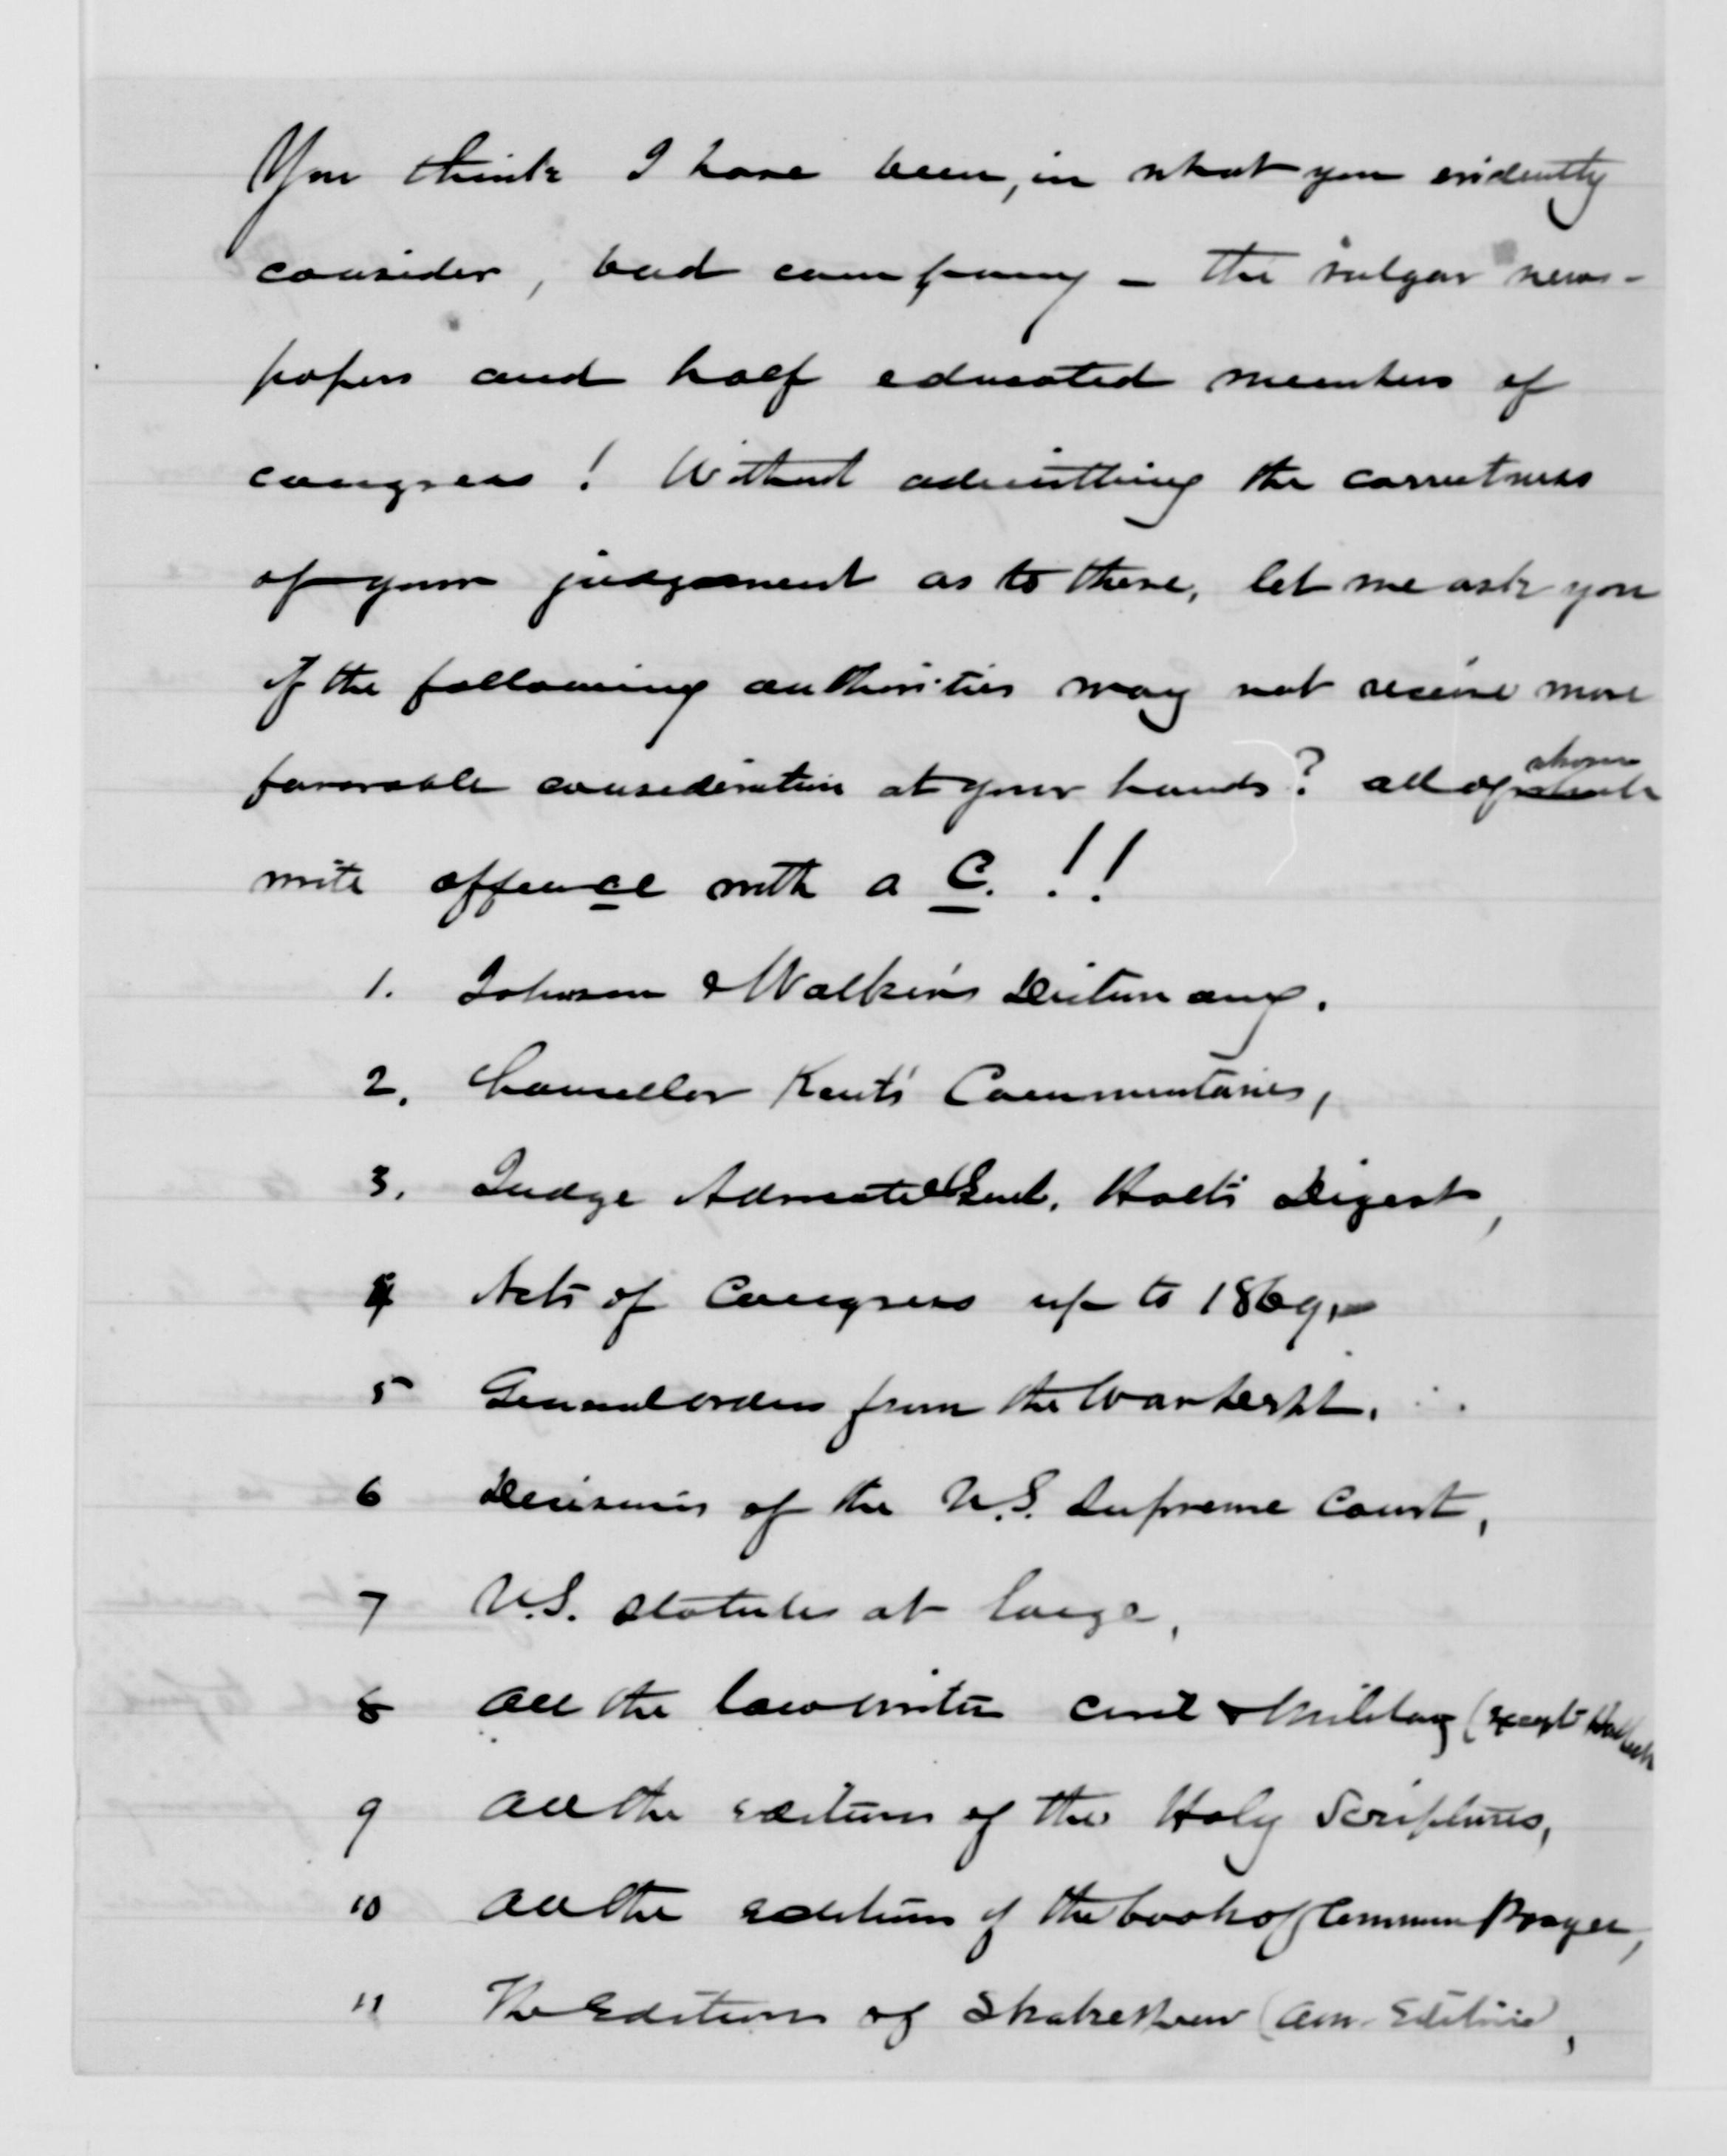 You think I have been, in what you evidently
consider, bad company - the vulgar news-
papers and half educated members of
congress! Without admitting the correctness
of your judgement as to these, let me ask you
if the following authorities may not receive more
favorable consideration at your hands? all of whom
write offence with a C.!!
1. Johnson & Walker's Dictionary.
2. Chancellor Kent's Commentaries,
3. Judge Advocate Genl. Holt's Digest,
4 Acts of Congress up to 1869,
5 General orders from the War Dept.
6 Decisions of the U.S. Supreme Court,
7 U.S. Statutes at large,
8 All the law writers civil & military (except Halleck
9 All the editions of the Holy Scriptures,
10 All the editions of the book of Common Prayer,
11 The Editions of Shakespear (Am. Editions),